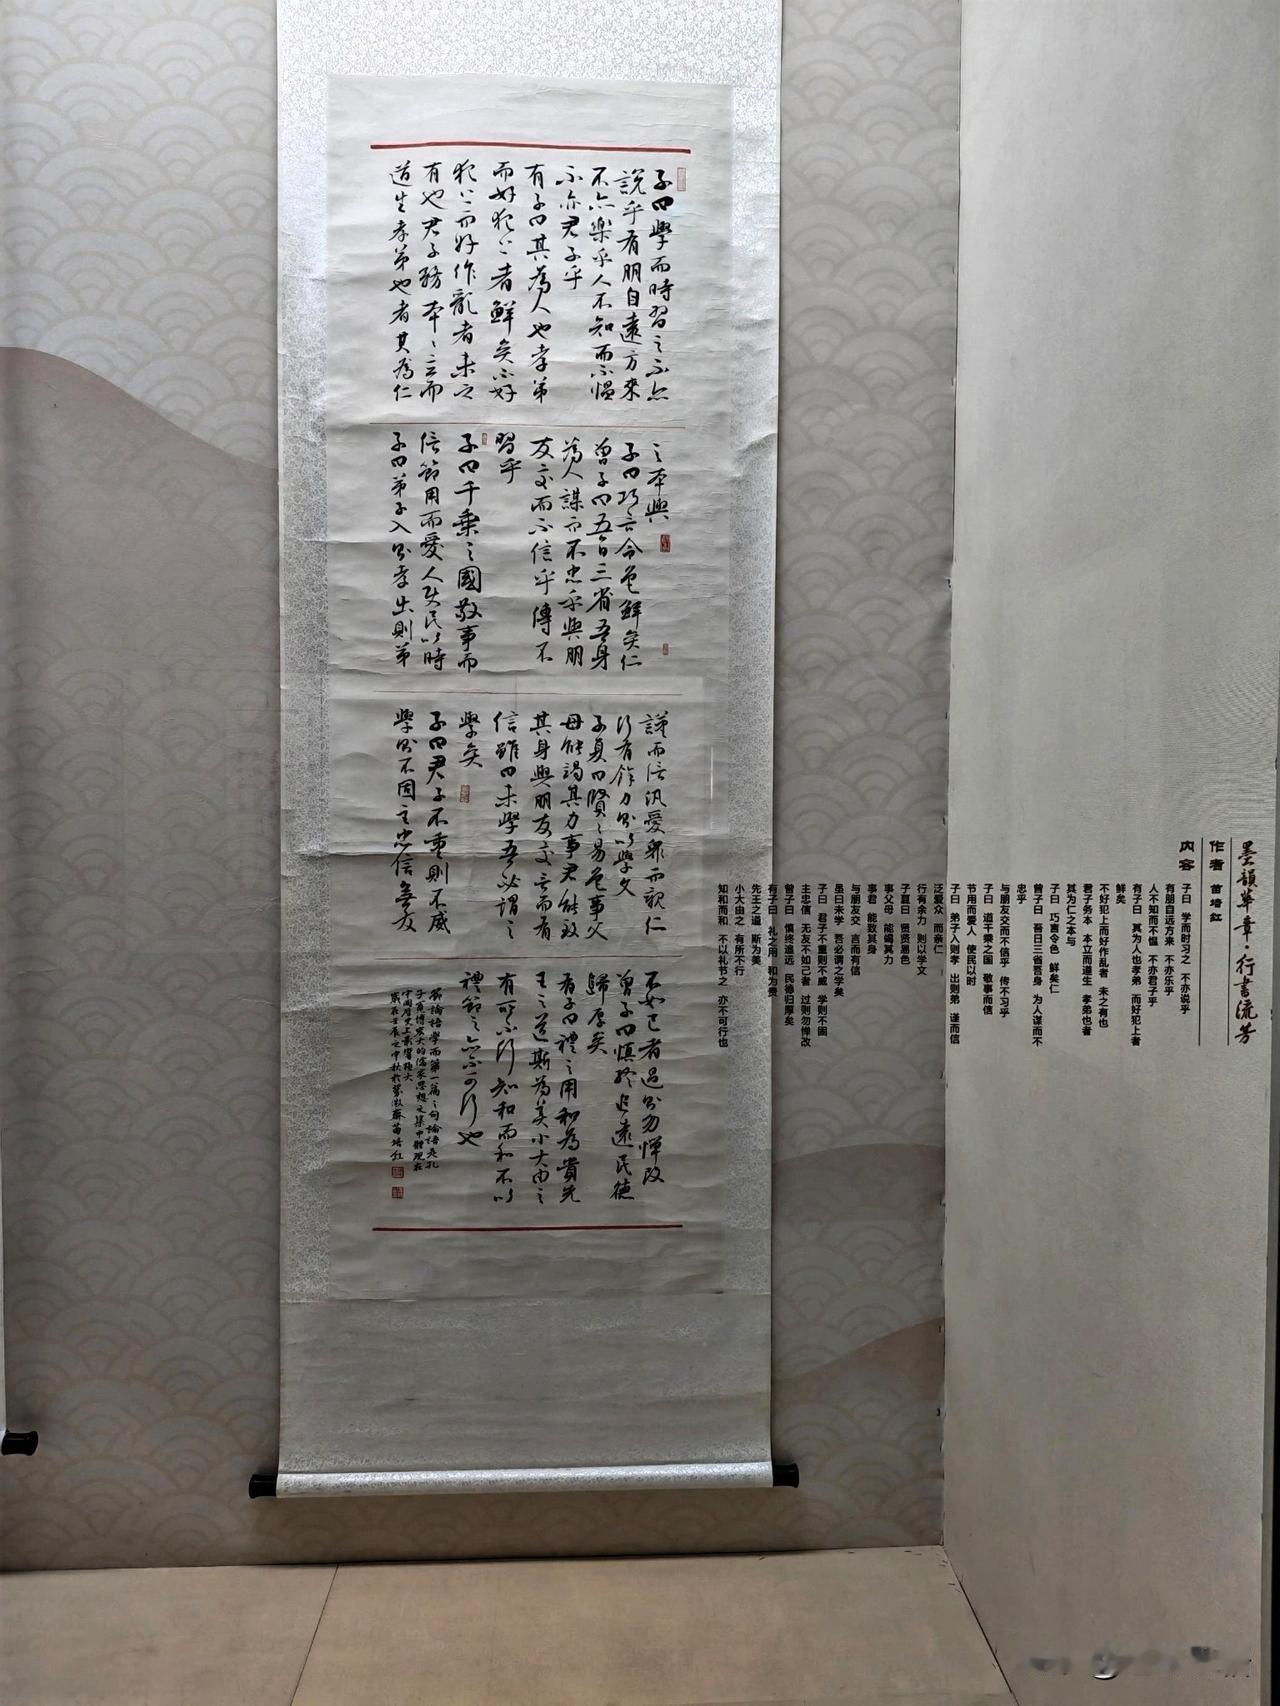 墨韻華章·行書流芳
作者 苗培红
内容
子曰 学而时习之 不亦说乎
有朋自远方来 不亦乐乎
人不知而不愠 不亦君子乎
有子曰 其为人也孝弟 而好犯上者
鲜矣
不好犯上而好作乱者 未之有也
君子务本 本立而道生 孝弟也者
其为仁之本与
子曰 巧言令色 鲜矣仁
曾子曰 吾日三省吾身 为人谋而不
忠乎
与朋友交而不信乎 传不习乎
子曰 道千乘之国 敬事而信
节用而爱人 使民以时
子曰 弟子入则孝 出则弟 谨而信
泛爱众 而亲仁
行有余力 则以学文
子夏曰 贤贤易色
事父母 能竭其力
事君 能致其身
与朋友交 言而有信
虽曰未学 吾必谓之学矣
子曰 君子不重则不威 学则不固
主忠信 无友不如己者 过则勿惮改
曾子曰 慎终追远 民德归厚矣
有子曰 礼之用 和为贵
先王之道 斯为美
小大由之 有所不行
知和而和 不以礼节之 亦不可行也
子曰學而時習之不亦
說乎有朋自遠方來
不亦樂乎人不知而不愠
不亦君子乎
有子曰其為人也孝弟
而好犯上者鮮矣不好
犯上而好作亂者未之
有也君子務本本立而
道生孝弟也者其為仁
之本與
子曰巧言令色鮮矣仁
曾子曰吾日三省吾身
為人謀而不忠乎與朋
友交而不信乎傳不
習乎
子曰千乗之國敬事而
信節用而愛人使民以時
子曰弟子入則孝出則弟
謹而信汎愛眾而親仁
行有餘力則以學文
子夏曰賢賢易色事父
母能竭其力事君能致
其身與朋友交言而有
信雖曰未學吾必謂之
學矣
子曰君子不重則不威
學則不固主忠信無友
不如己者過則勿憚改
曾子曰慎終追遠民德
歸厚矣
有子曰禮之用和為貴先
王之道斯為美小大由之
有所不行知和而和不以
禮節之亦不可行也
論語學而第一篇之句論語是孔
子博大的儒家思想之集中體現在
中國歷史上影響極大
歲在壬辰之中秋於 苗培红